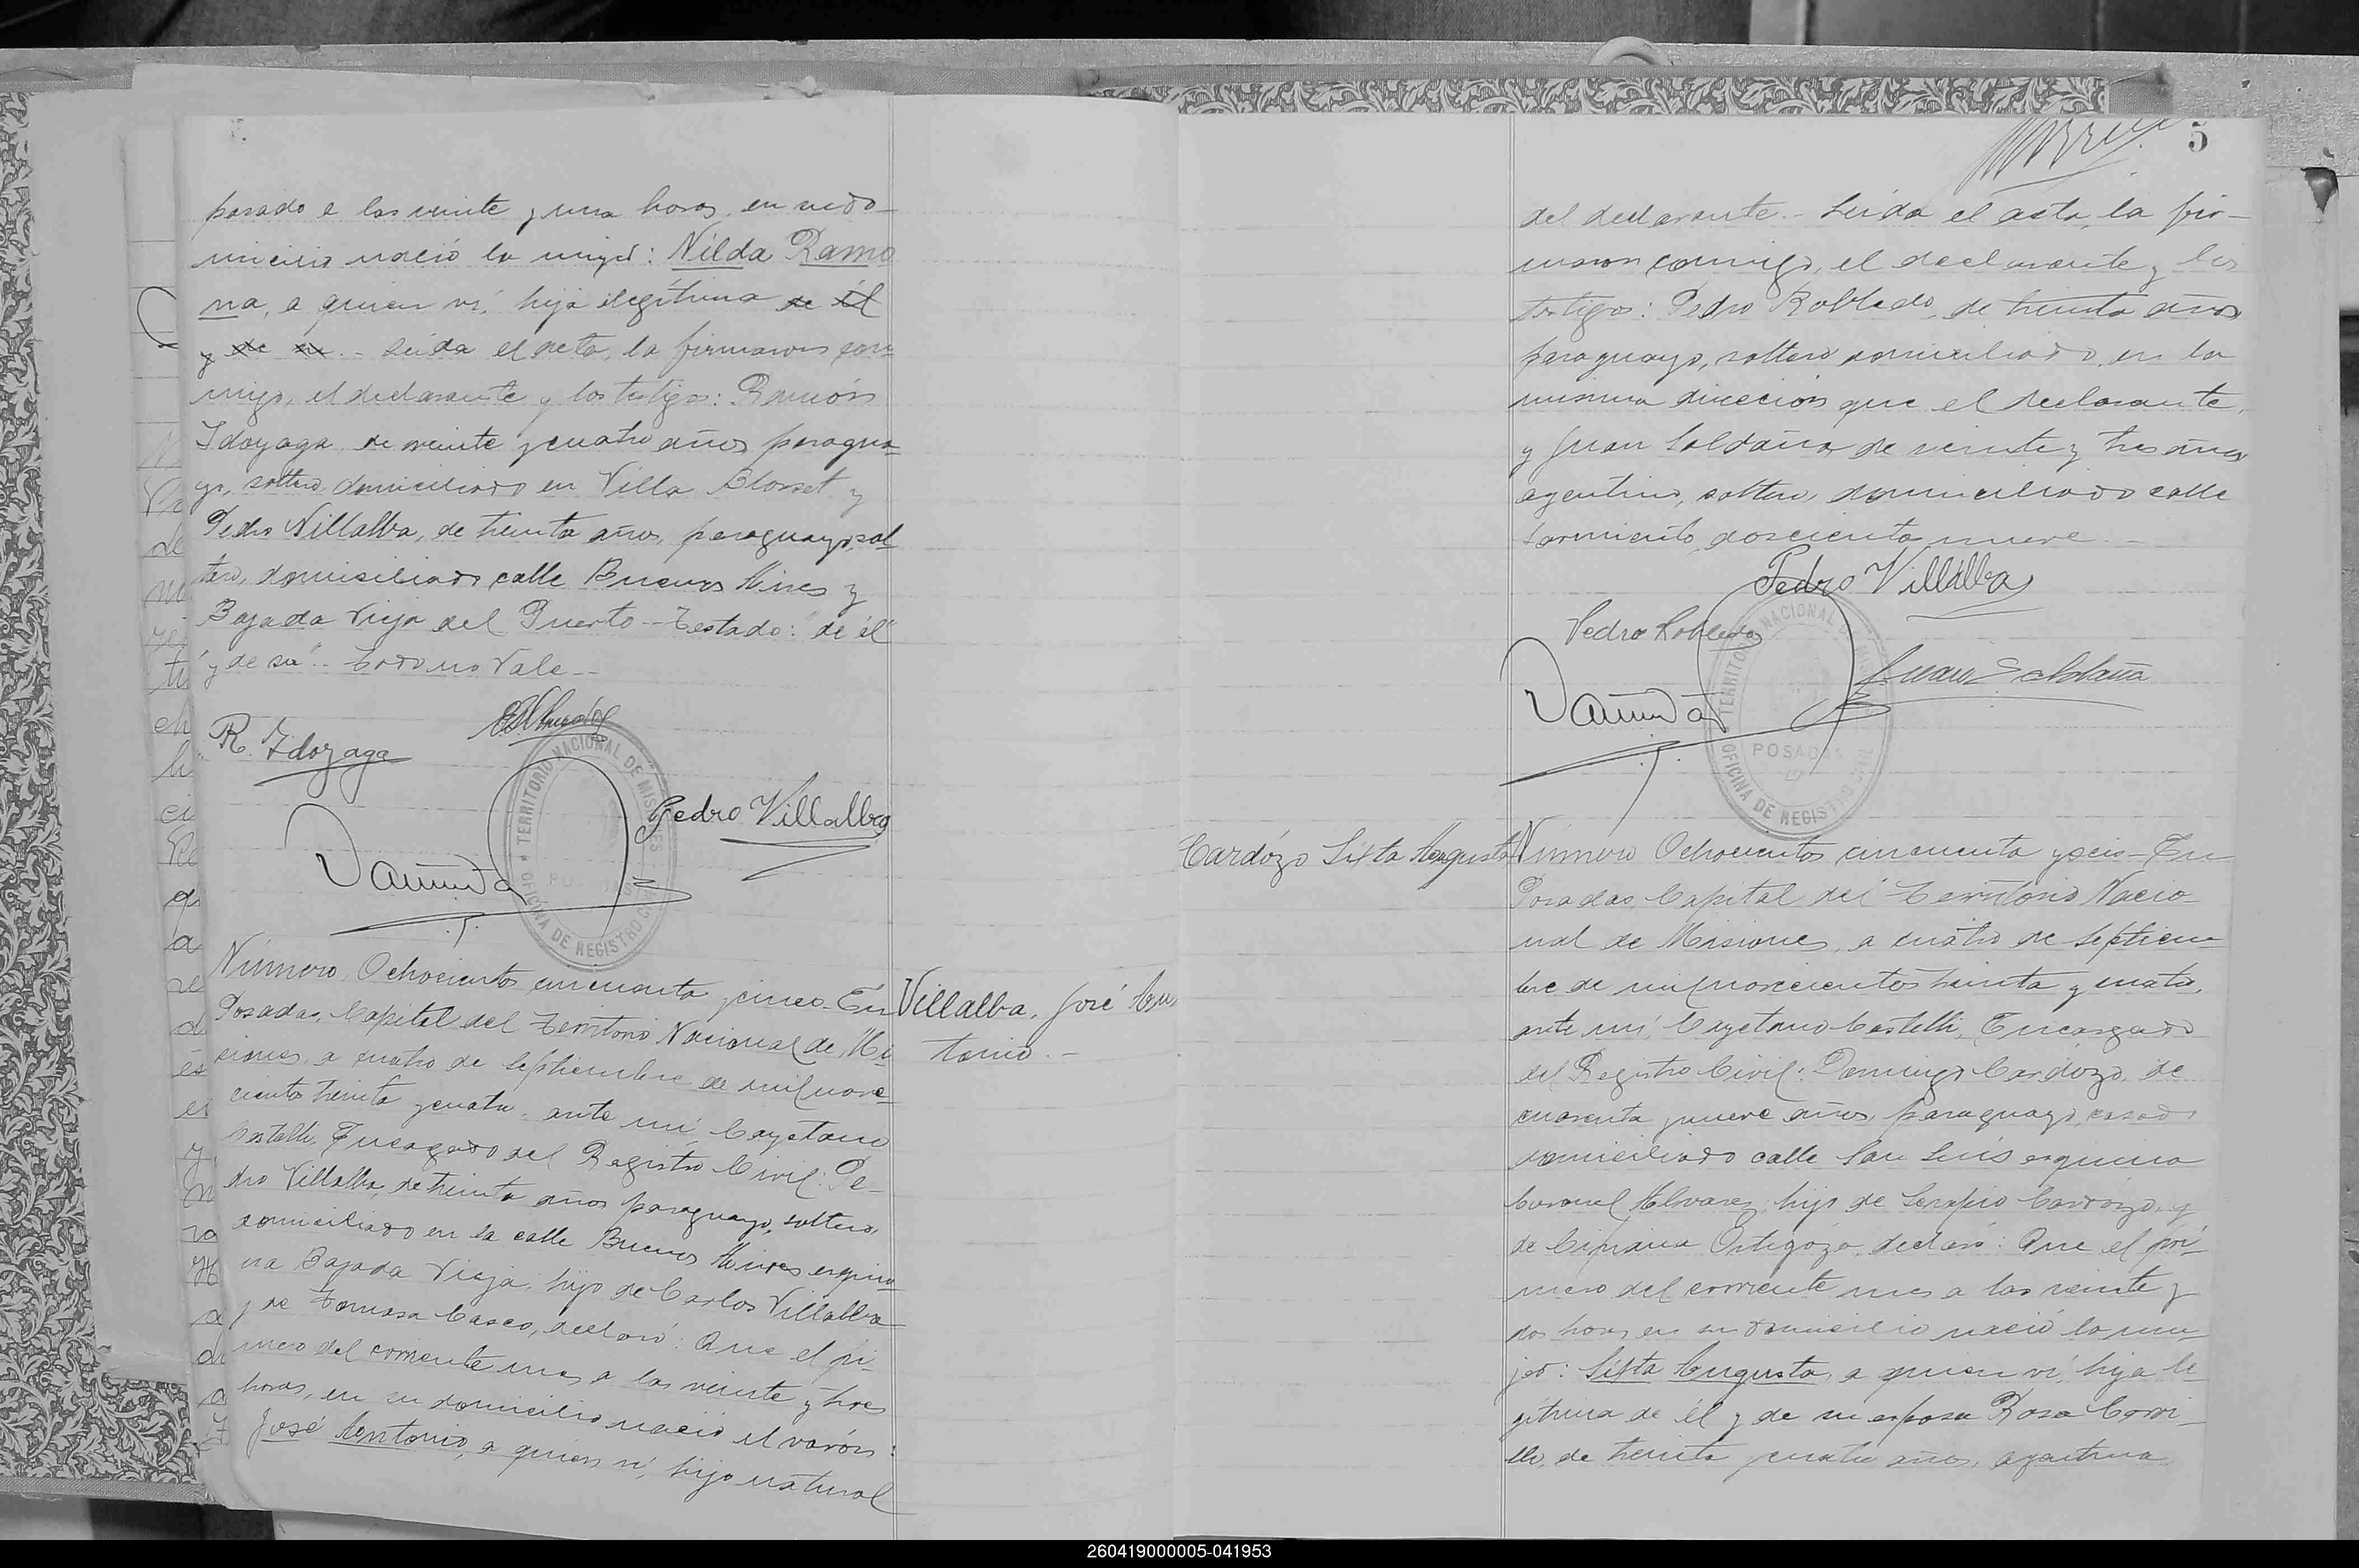 pasado a las veinte y una horas, en su do-
micilio nació la mujer: Nilda Ramo
na, a quien ví, hija ilegítima de él
y de su.- Leída el acta, la firmaron con-
migo, el declarante y los testigos: Ramón
Idoyaga, de veinte y cuatro años, paragua-
yo, soltero, domiciliado en Villa Blosset y
Pedro Villalba, de treinta años, paraguayo, sol-
tero, domiciliado calle Buenos Aires y
Bajada Vieja del Puerto - Testado: "de él"
"y de su".- Todo no vale.-
R. Idoyaga
Pedro Villalba
TERRITORIO NACIONAL DE MISIONES
POSADAS
OFICINA DE REGISTRO CIVIL
Número Ochocientos cincuenta y cinco - En
Posadas, Capital del Territorio Nacional de Mi-
siones, a cuatro de Septiembre de mil nove-
cientos treinta y cuatro, ante mí Cayetano
Castelli, Encargado del Registro Civil: Pe-
dro Villalba, de treinta años, paraguayo, soltero,
domiciliado en la calle Buenos Aires esqui-
na Bajada Vieja, hijo de Carlos Villalba
y de Tomasa Casco, declaró: Que el pri-
mero del corriente mes a las veinte y tres
horas, en su domicilio nació el varón:
José Antonio, a quien ví, hijo natural
Villalba, José An
tonio.-
5
del declarante.- Leída el acta, la fir-
maron conmigo, el declarante y los
testigos: Pedro Robledo, de treinta años
paraguayo, soltero domiciliado en la
misma dirección que el declarante,
y Juan Saldaña de veinte y tres años
argentino, soltero, domiciliado calle
Sarmiento doscientos nueve.-
Pedro Villalba
Pedro Robledo
Juan Saldaña
TERRITORIO NACIONAL DE MISIONES
POSADAS
OFICINA DE REGISTRO CIVIL
Cardózo Sixta Augusta
Número Ochocientos cincuenta y seis - En
Posadas, Capital del Territorio Nacio-
nal de Misiones, a cuatro de Septiem-
bre de mil novecientos treinta y cuatro,
ante mí, Cayetano Castelli, Encargado
del Registro Civil: Domingo Cardózo, de
cuarenta y nueve años, paraguayo, casado
domiciliado calle San Luís esquina
Coronel Alvarez, hijo de Serapio Cardózo, y
de Cipriana Ortigóza, declaró: Que el pri-
mero del corriente mes a las veinte y
dos horas, en su domicilio nació la mu-
jer: Sixta Augusta, a quien ví, hija le
gítima de él y de su esposa Rosa Carri-
llo, de treinta y cuatro años, argentina